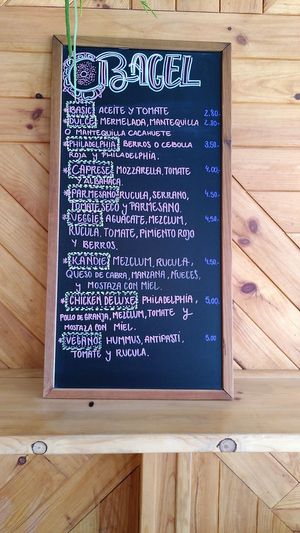 BAGEL
*BASIC: ACEITE Y TOMATE 2.80.-
*DULCE: MERMELADA, MANTEQUILLA 2.80.-
O MANTEQUILLA CACAHUETE
*PHILADELPHIA: BERROS O CEBOLLA 3.50.-
ROJA Y PHILADELPHIA.
*CAPRESE: MOZZARELLA, TOMATE 4.00.-
Y ALBAHACA.
*PARMESANO: RUCULA, SERRANO, 4.50.-
TOMATE SECO Y PARMESANO.
*VEGGIE: AGUACATE, MEZCLUM, 4.50.-
RUCULA, TOMATE, PIMIENTO ROJO
Y BERROS.
*KANDIE: MEZCLUM, RUCULA, 4.50.-
QUESO DE CABRA, MANZANA, NUECES,
Y MOSTAZA CON MIEL.
*CHICKEN DELUXE: PHILADELPHIA, 5.00
POLLO DE GRANJA, MEZCLUM, TOMATE Y
MOSTAZA CON MIEL.
*VEGANO: HUMMUS, ANTIPASTI, 5.00
TOMATE Y RUCULA.